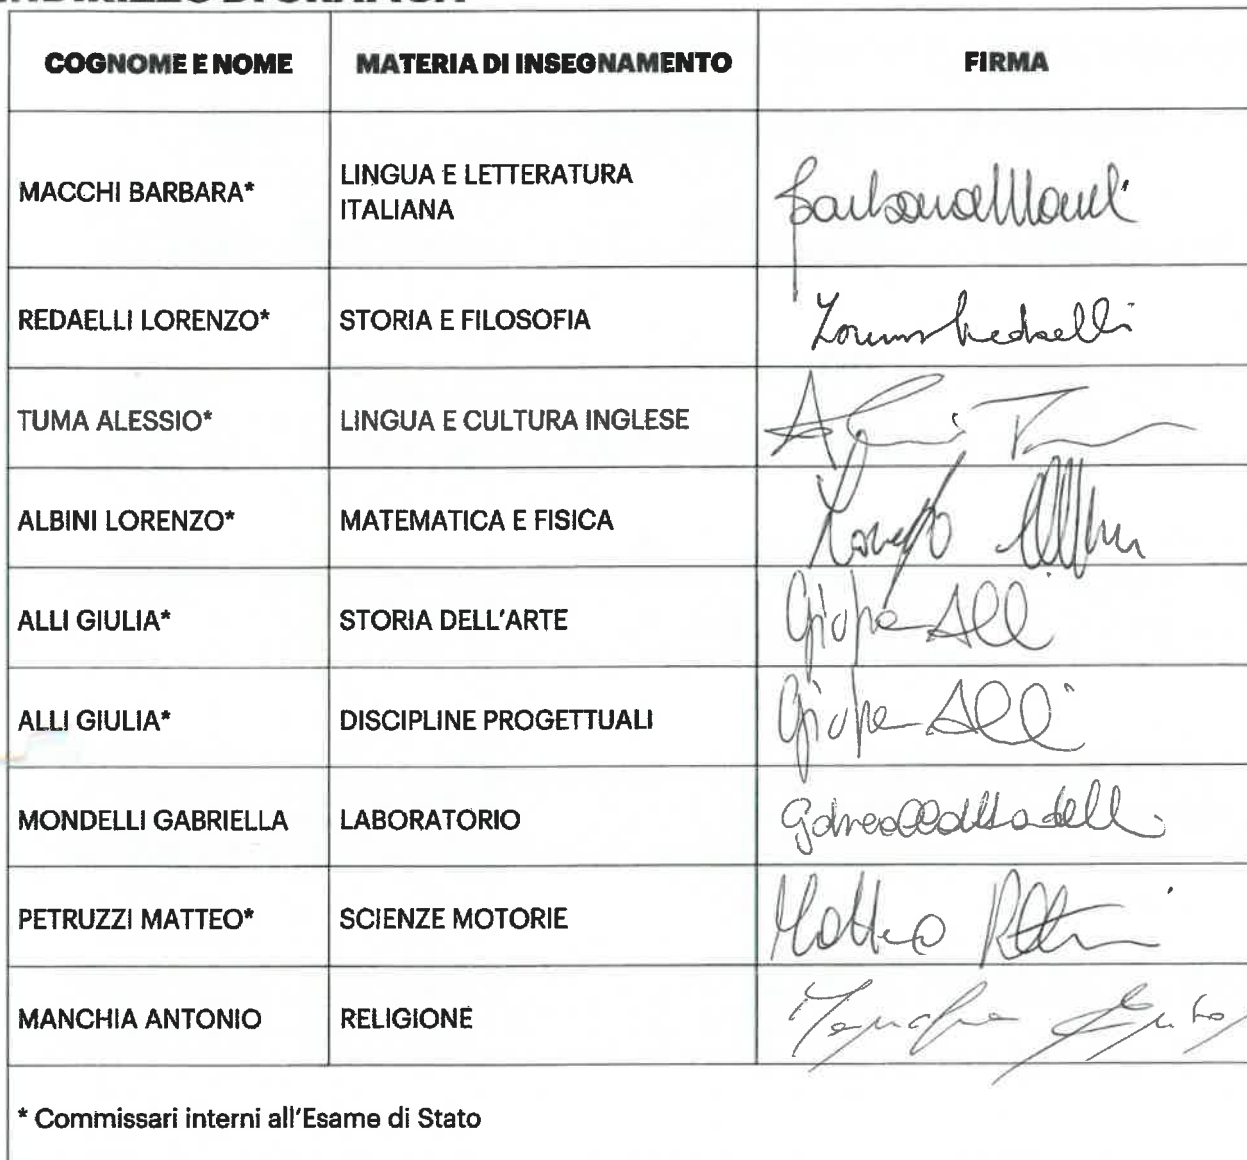 COGNOME E NOME MATERIA DI INSEGNAMENTO FIRMA
MACCHI BARBARA* LINGUA E LETTERATURA
ITALIANA Barbara Macchi
REDAELLI LORENZO* STORIA E FILOSOFIA Lorenzo Redaelli
TUMA ALESSIO* LINGUA E CULTURA INGLESE
ALBINI LORENZO* MATEMATICA E FISICA
ALLI GIULIA* STORIA DELL'ARTE Giulia Alli
ALLI GIULIA* DISCIPLINE PROGETTUALI Giulia Alli
MONDELLI GABRIELLA LABORATORIO Gabriella Mondelli
PETRUZZI MATTEO* SCIENZE MOTORIE Matteo
MANCHIA ANTONIO RELIGIONE
* Commissari interni all'Esame di Stato